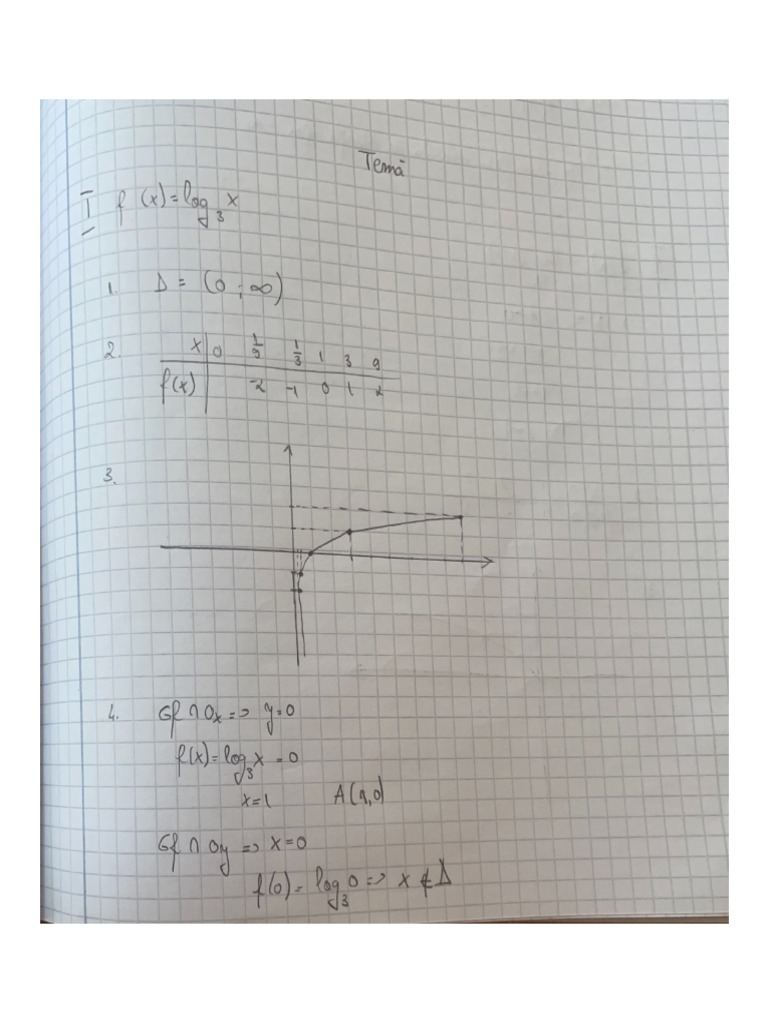 Temă
I f(x)=log₃x
1. Δ = (0;∞)
2. x | 0 1/9 1/3 1 3 9
f(x) | -2 -1 0 1 2
3.
4. Gf ∩ Ox => y=0
f(x)=log₃x = 0
x=1 A(1,0)
Gf ∩ Oy => x=0
f(0) = log₃0 => x ∉ Δ